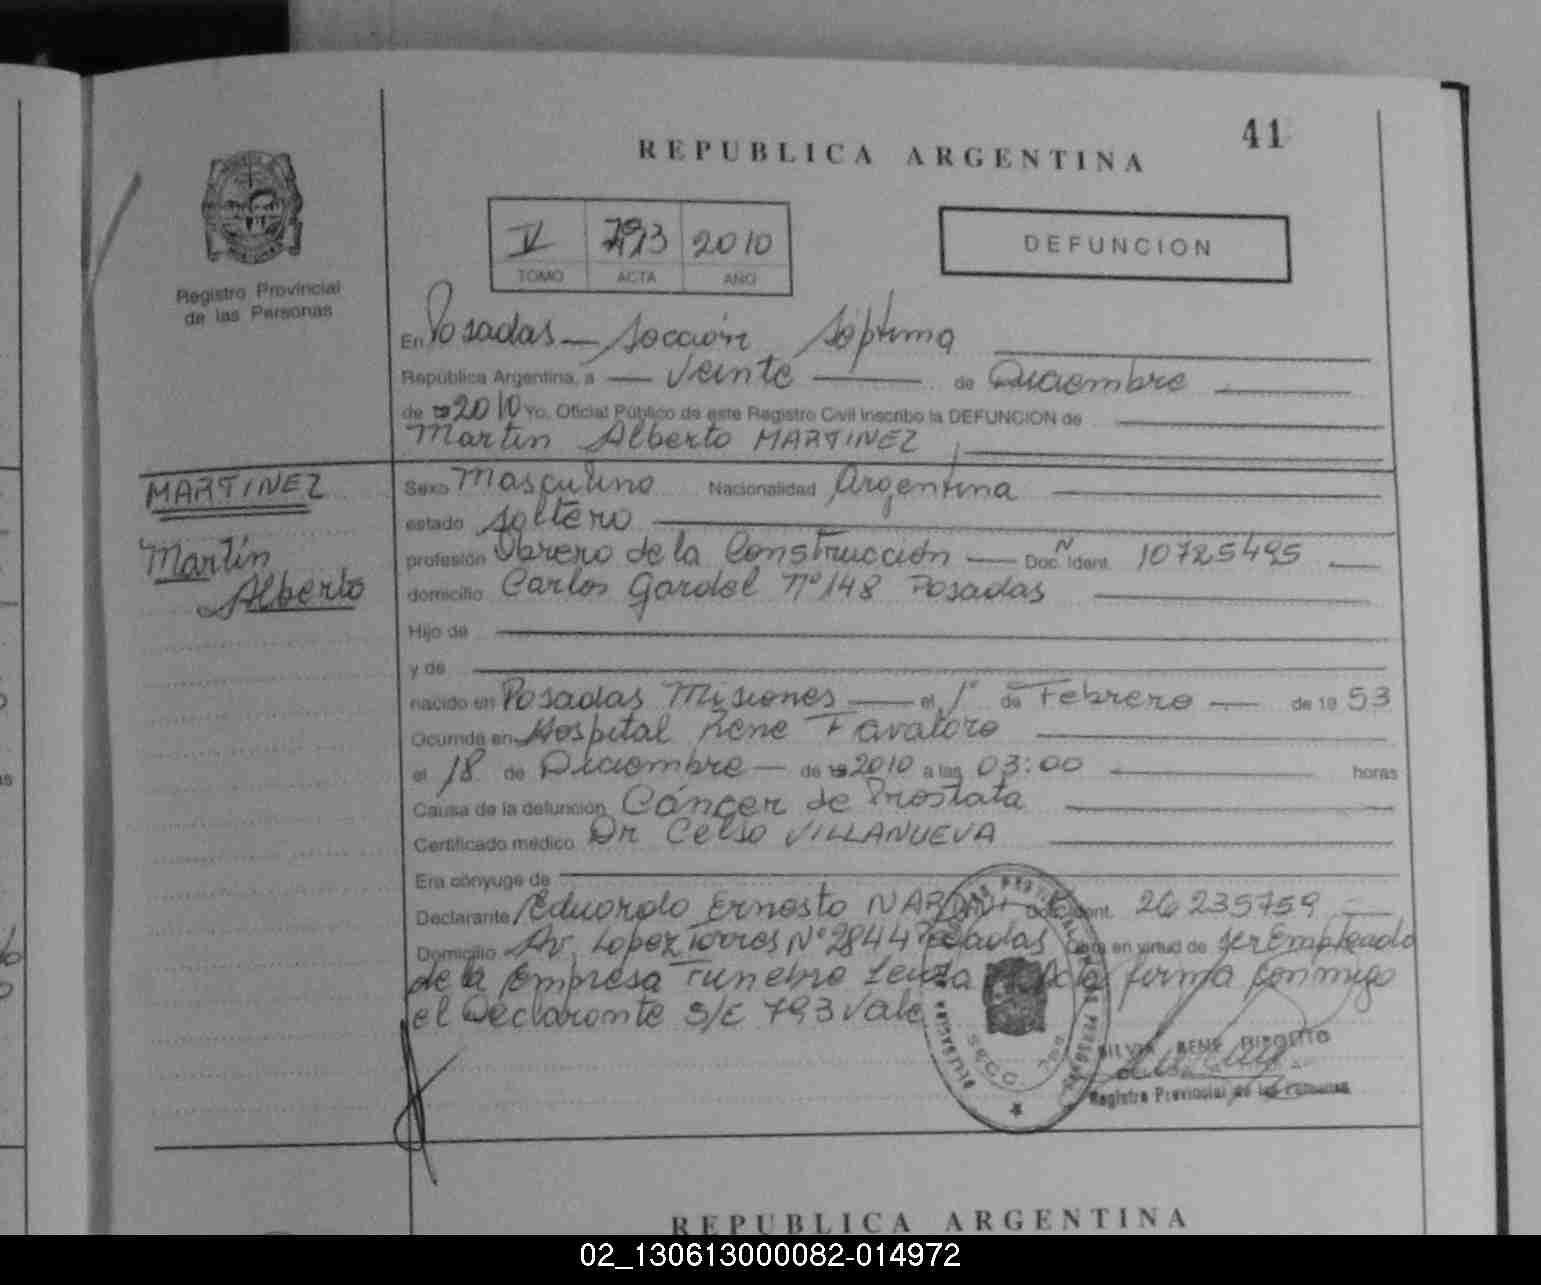 41
REPUBLICA ARGENTINA
V 793 2010
TOMO ACTA AÑO
DEFUNCION
Registro Provincial
de las Personas
En Posadas — Sección Séptima
República Argentina, a — Veinte — de Diciembre
de 2010 Yo, Oficial Público de este Registro Civil inscribo la DEFUNCION de
Martin Alberto MARTINEZ
MARTINEZ
Martín
Alberto
Sexo Masculino Nacionalidad Argentina
estado Soltero
profesión Obrero de la Construcción — Doc. Ident. N 10725495
domicilio Carlos Gardel Nº 148 Posadas
Hijo de
y de
nacido en Posadas Misiones — el 1º de Febrero — de 19 53
Ocurrida en Hospital Rene Favaloro
el 18 de Diciembre — de 2010 a las 03:00 horas
Causa de la defunción Cáncer de Prostata
Certificado médico Dr Celso VILLANUEVA
Era cónyuge de
Declarante Eduardo Ernesto Doc. Ident. 26 235759
Domicilio Av. Lopez Torres Nº 2844 Posadas Obra en virtud de ser Empleado
de la Empresa Funebre firma conmigo
el Declarante S/E 793 Vale
SECC. 7ma
Registro Provincial de las Personas
REPUBLICA ARGENTINA
02_130613000082-014972